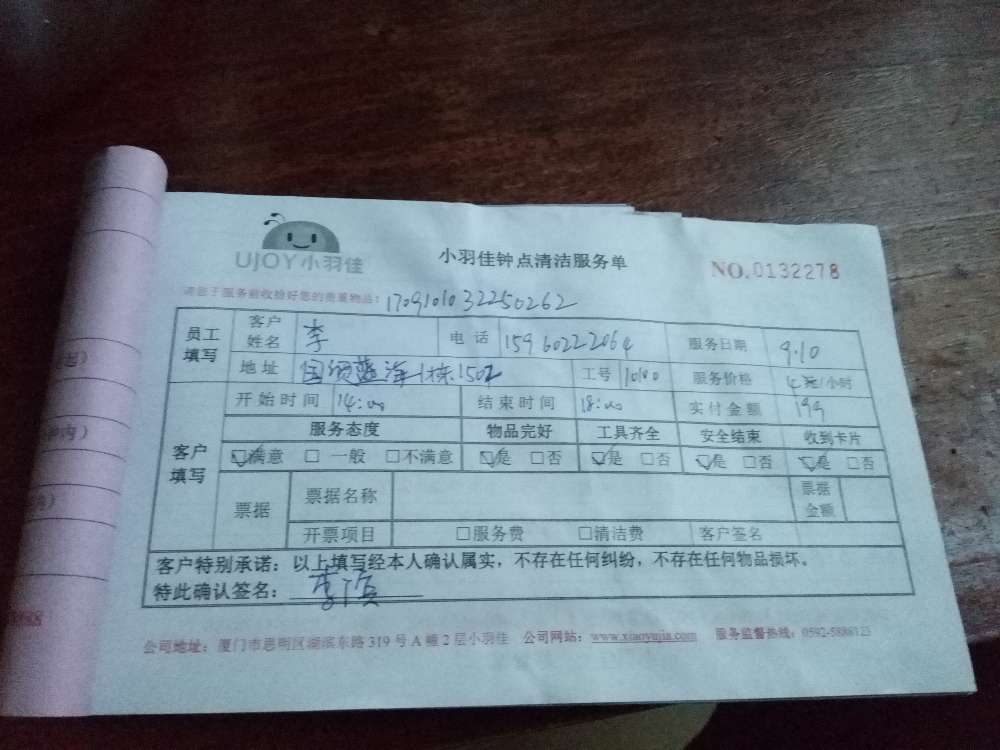 UJOY小羽佳
小羽佳钟点清洁服务单
NO.0132278
请您于服务前收拾好您的贵重物品：1709101032250262
员工填写 客户姓名 李 电话 15960222064 服务日期 9.10
地址 国贸蓝海 1栋1502 工号 服务价格 /小时
开始时间 14:00 结束时间 18:00 实付金额 199
客户填写 服务态度 物品完好 工具齐全 安全结束 收到卡片
☑满意 □一般 □不满意 ☑是 □否 ☑是 □否 ☑是 □否 ☑是 □否
票据 票据名称 票据金额
开票项目 □服务费 □清洁费 客户签名
客户特别承诺：以上填写经本人确认属实，不存在任何纠纷，不存在任何物品损坏。
特此确认签名：李
公司地址：厦门市思明区湖滨东路 319 号 A 幢 2 层小羽佳 公司网站：www.xiaoyujia.com 服务监督热线：0592-5888123